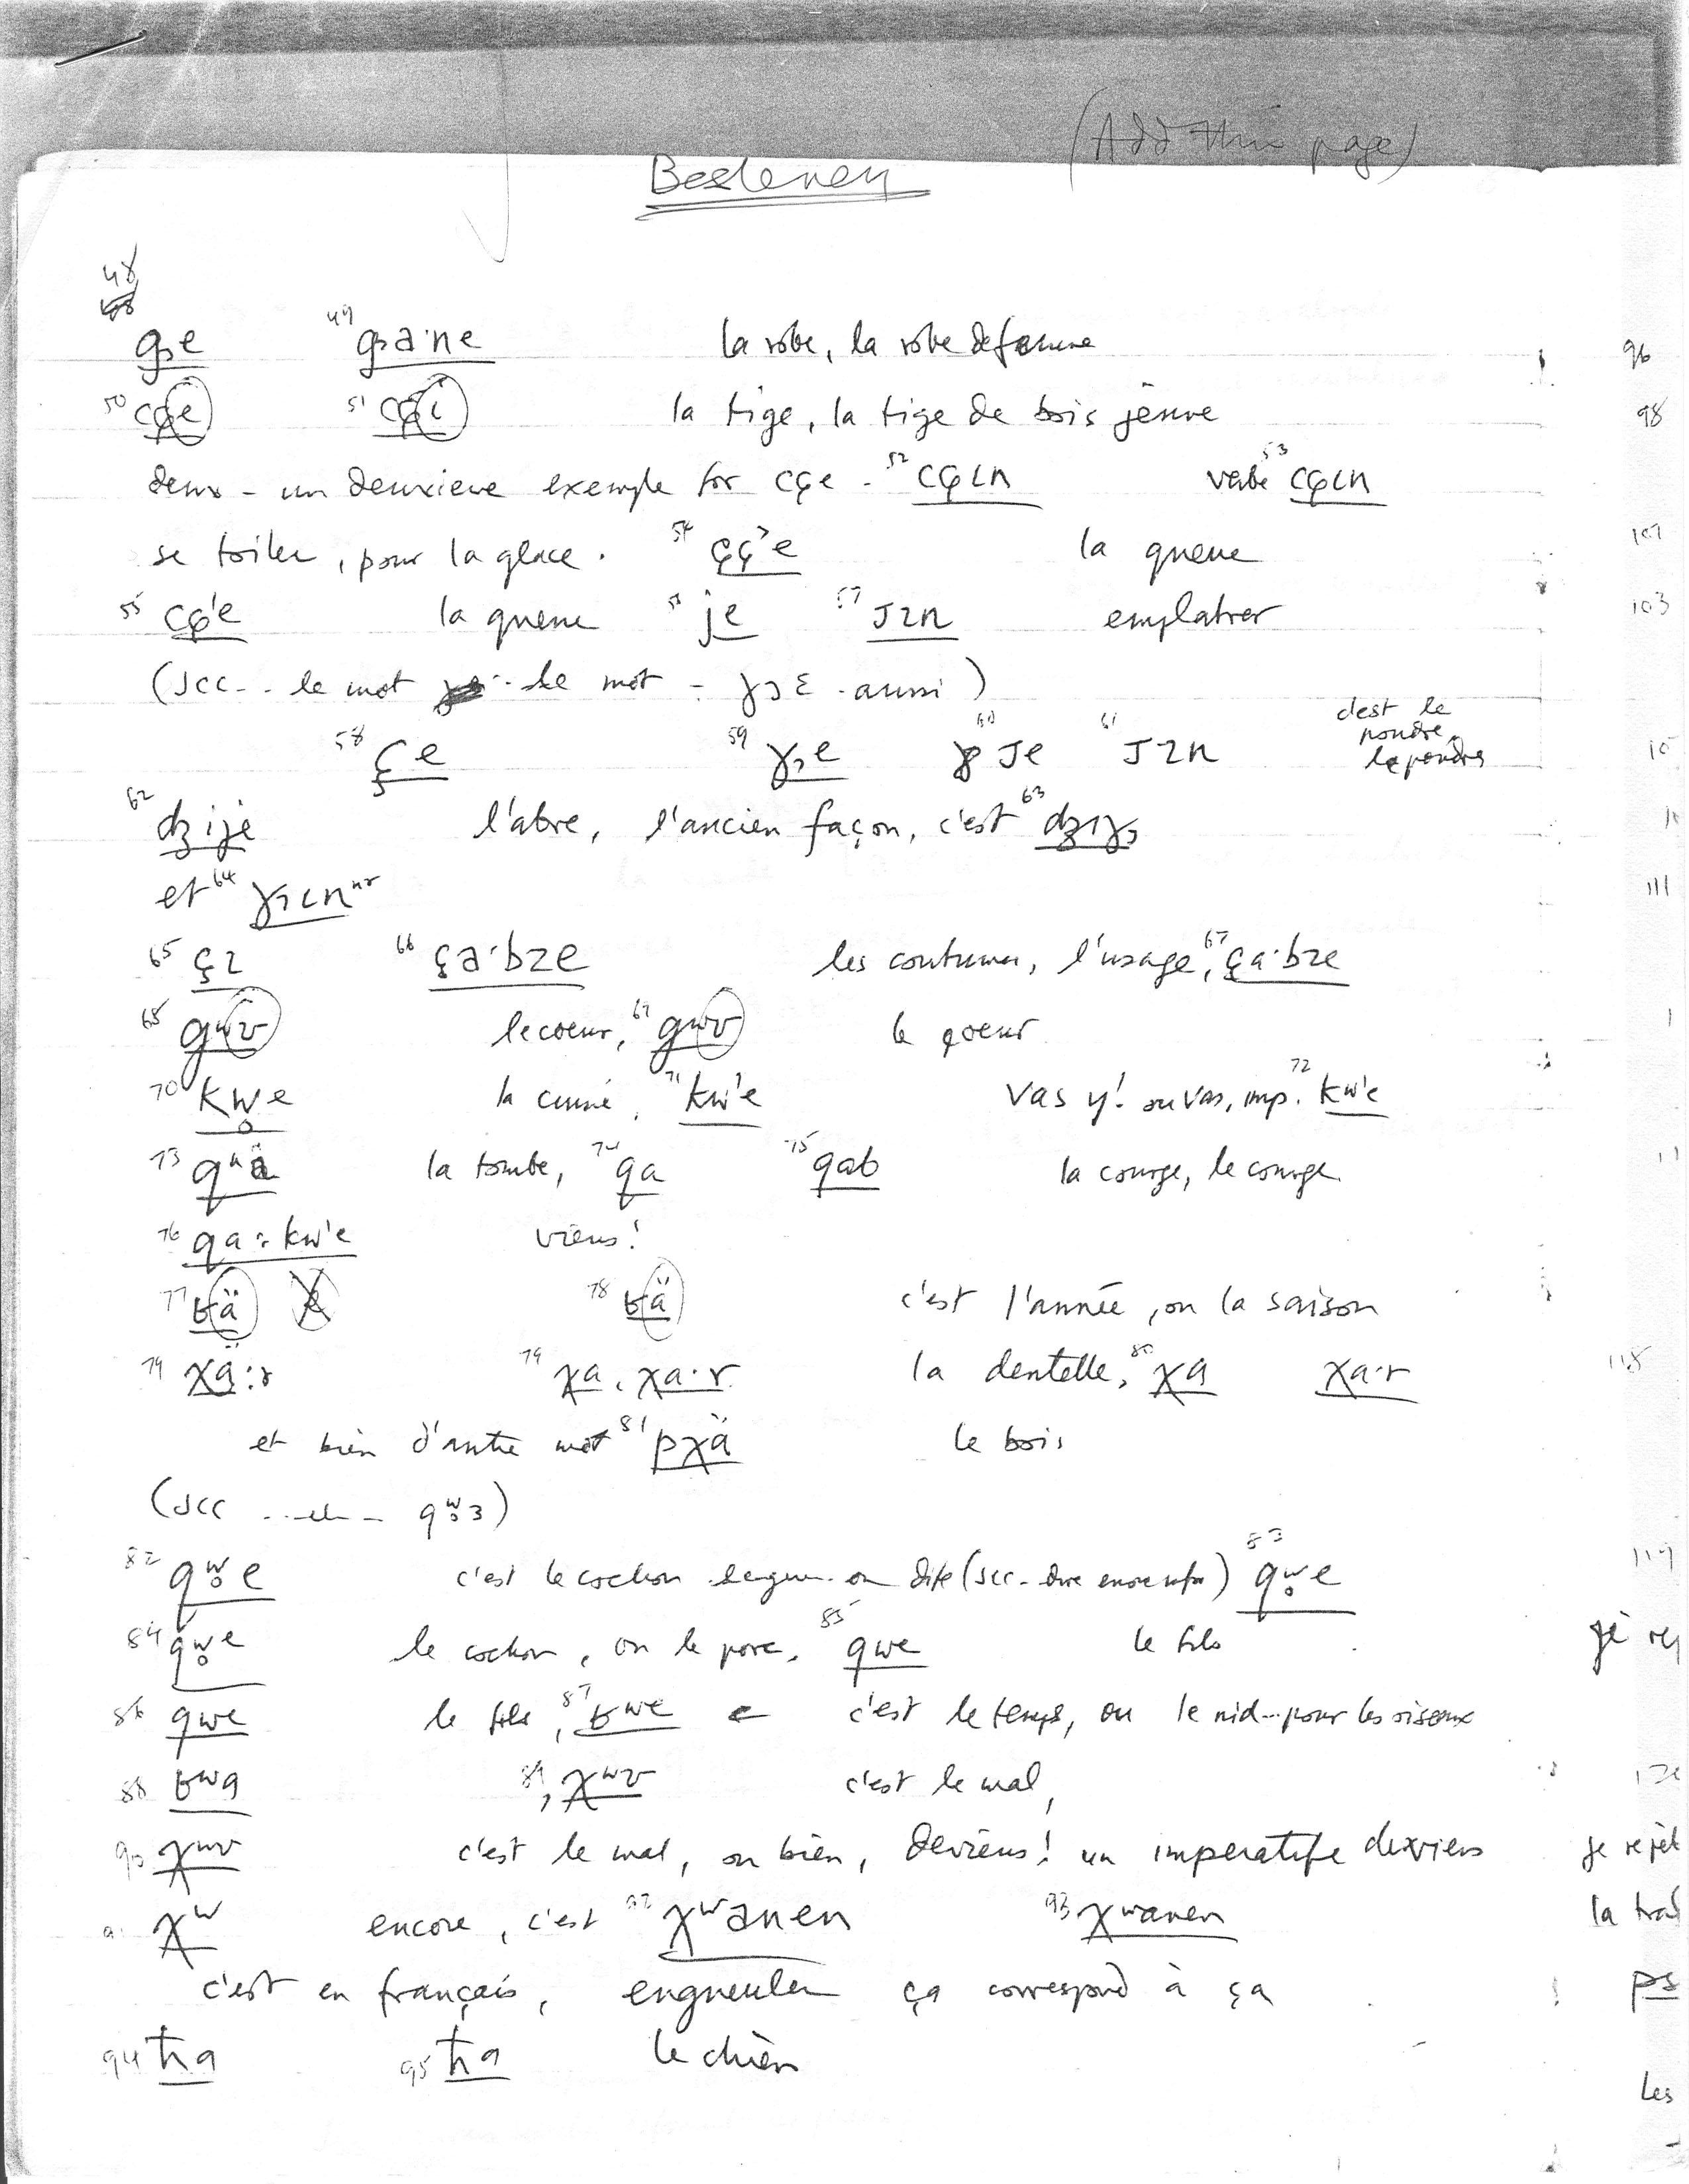 (Add this page)
Besleney
48
gₔe 49 gₔa·ne la robe, la robe de femme 96
50 cçe 51 cçi la tige, la tige de bois jeune 98
deux - un deuxieme exemple for cçe - 52 cçɩn verbe 53 cçɩn
se toiler, pour la glace. 54 çç'e la queue 101
55 cç'e la queue je 57 ɟɿn emplatrer 103
(JCC - - le mot - - le mot - ɣɔɛ - aussi)
58 çe 59 ɣₔe 60 ɟe 61 ɟɿn c'est le poudre
62 dʐije l'abre, l'ancien façon, c'est 63 dʐıɣₔ
et 64 ɣɿɩn 111
65 çɿ 66 ça·bze les coutumes, l'usage, 67 ça·bze
68 gwv le coeur, 69 gwv le coeur
70 kw̥e la cuiné, 71 kw'e Vas y! ou vas, imp. 72 kw'e
73 qʰä la tombe, 74 qa 75 qab la courge, le courge
76 qa: kw'e viens!
77 ʁä 78 ʁä c'est l'année, ou la saison
79 χä:r 79 χa, χa·r la dentelle, 80 χa χa·r 118
et bien d'autre mot 81 pχä le bois
(JCC - - - qw̥3)
82 qw̥e c'est le cochon on dite (JCC - dire encore) 83 qw̥e 119
84 qw̥e le cochon, ou le porc, 85 qwe le fils
86 qwe le fils, 87 ʁwe c'est le temps, ou le nid - pour les oiseaux
88 ʁwa 89, χwv c'est le mal,
90 χwv c'est le mal, ou bien, deviens! un imperatife deviens je rejet
91 χw encore, c'est 92 χwanen 93 χwanen la trad
c'est en français, engueuler ça correspond à ça ps
94 ħa 95 ħa le chien
Les